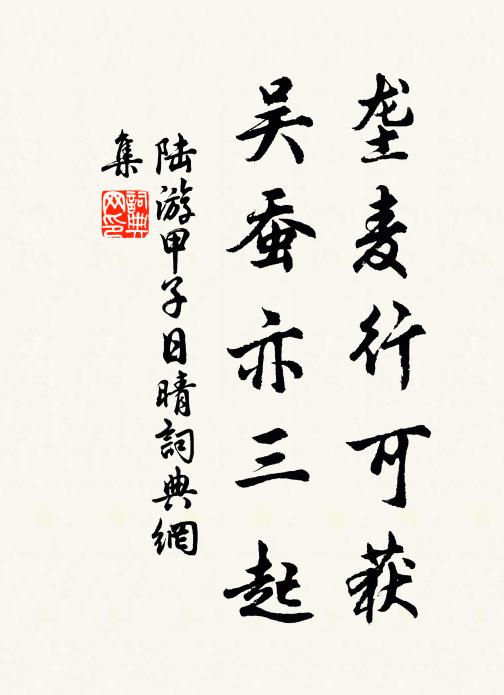 垄麦行可获
吴蚕亦三起
陆游甲子日晴詞典網
集
詞典
网印